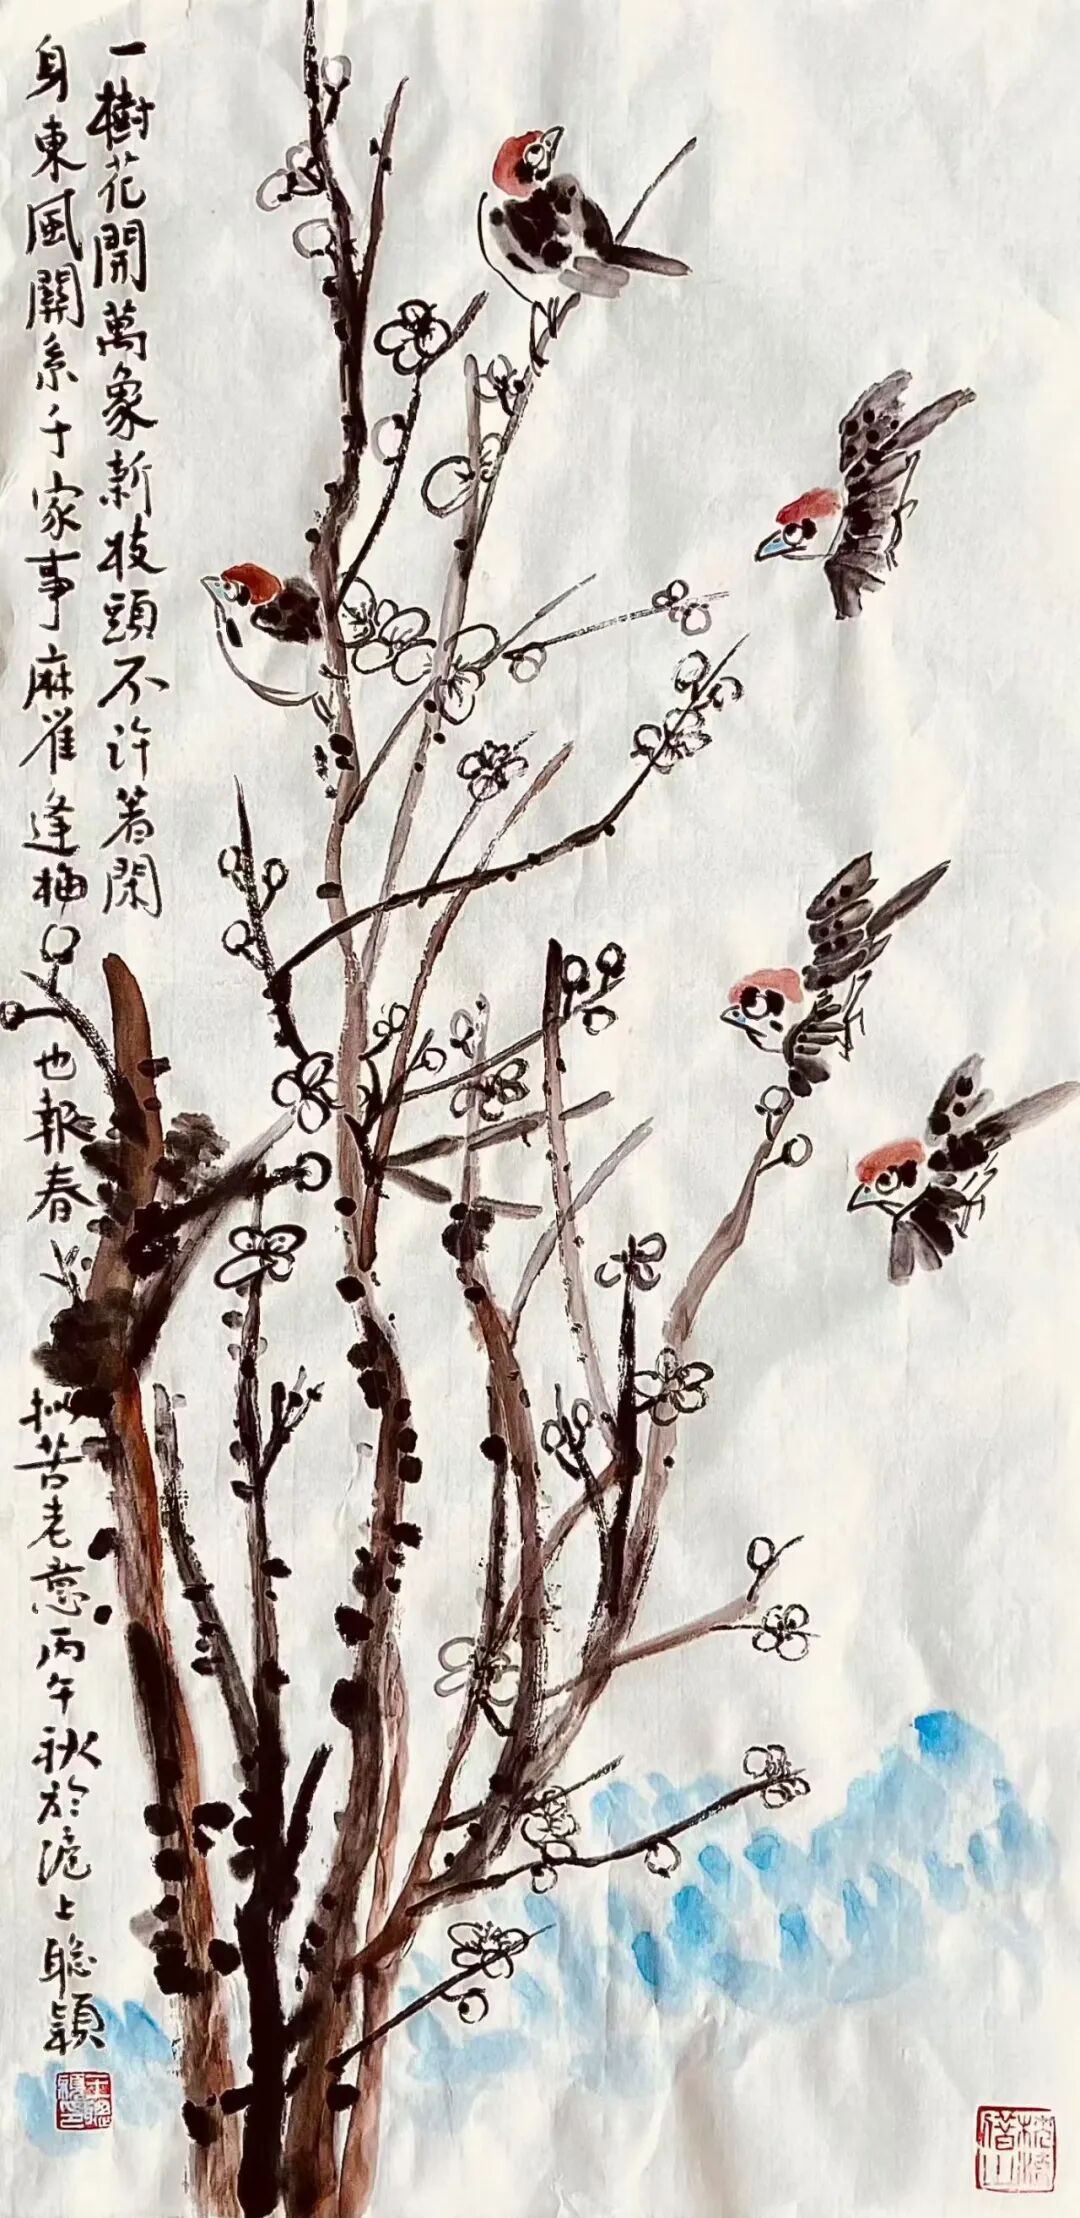 一樹花開萬象新枝頭不許著閑
身東風關系千家事麻雀逢梅也報春
拟苦老意丙午秋於滬上聰穎